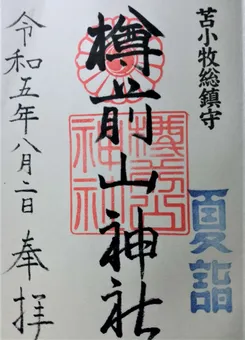 苫小牧総鎮守
夏詣
樽前山神社
樽前山
神社
令和五年八月二日 奉拝